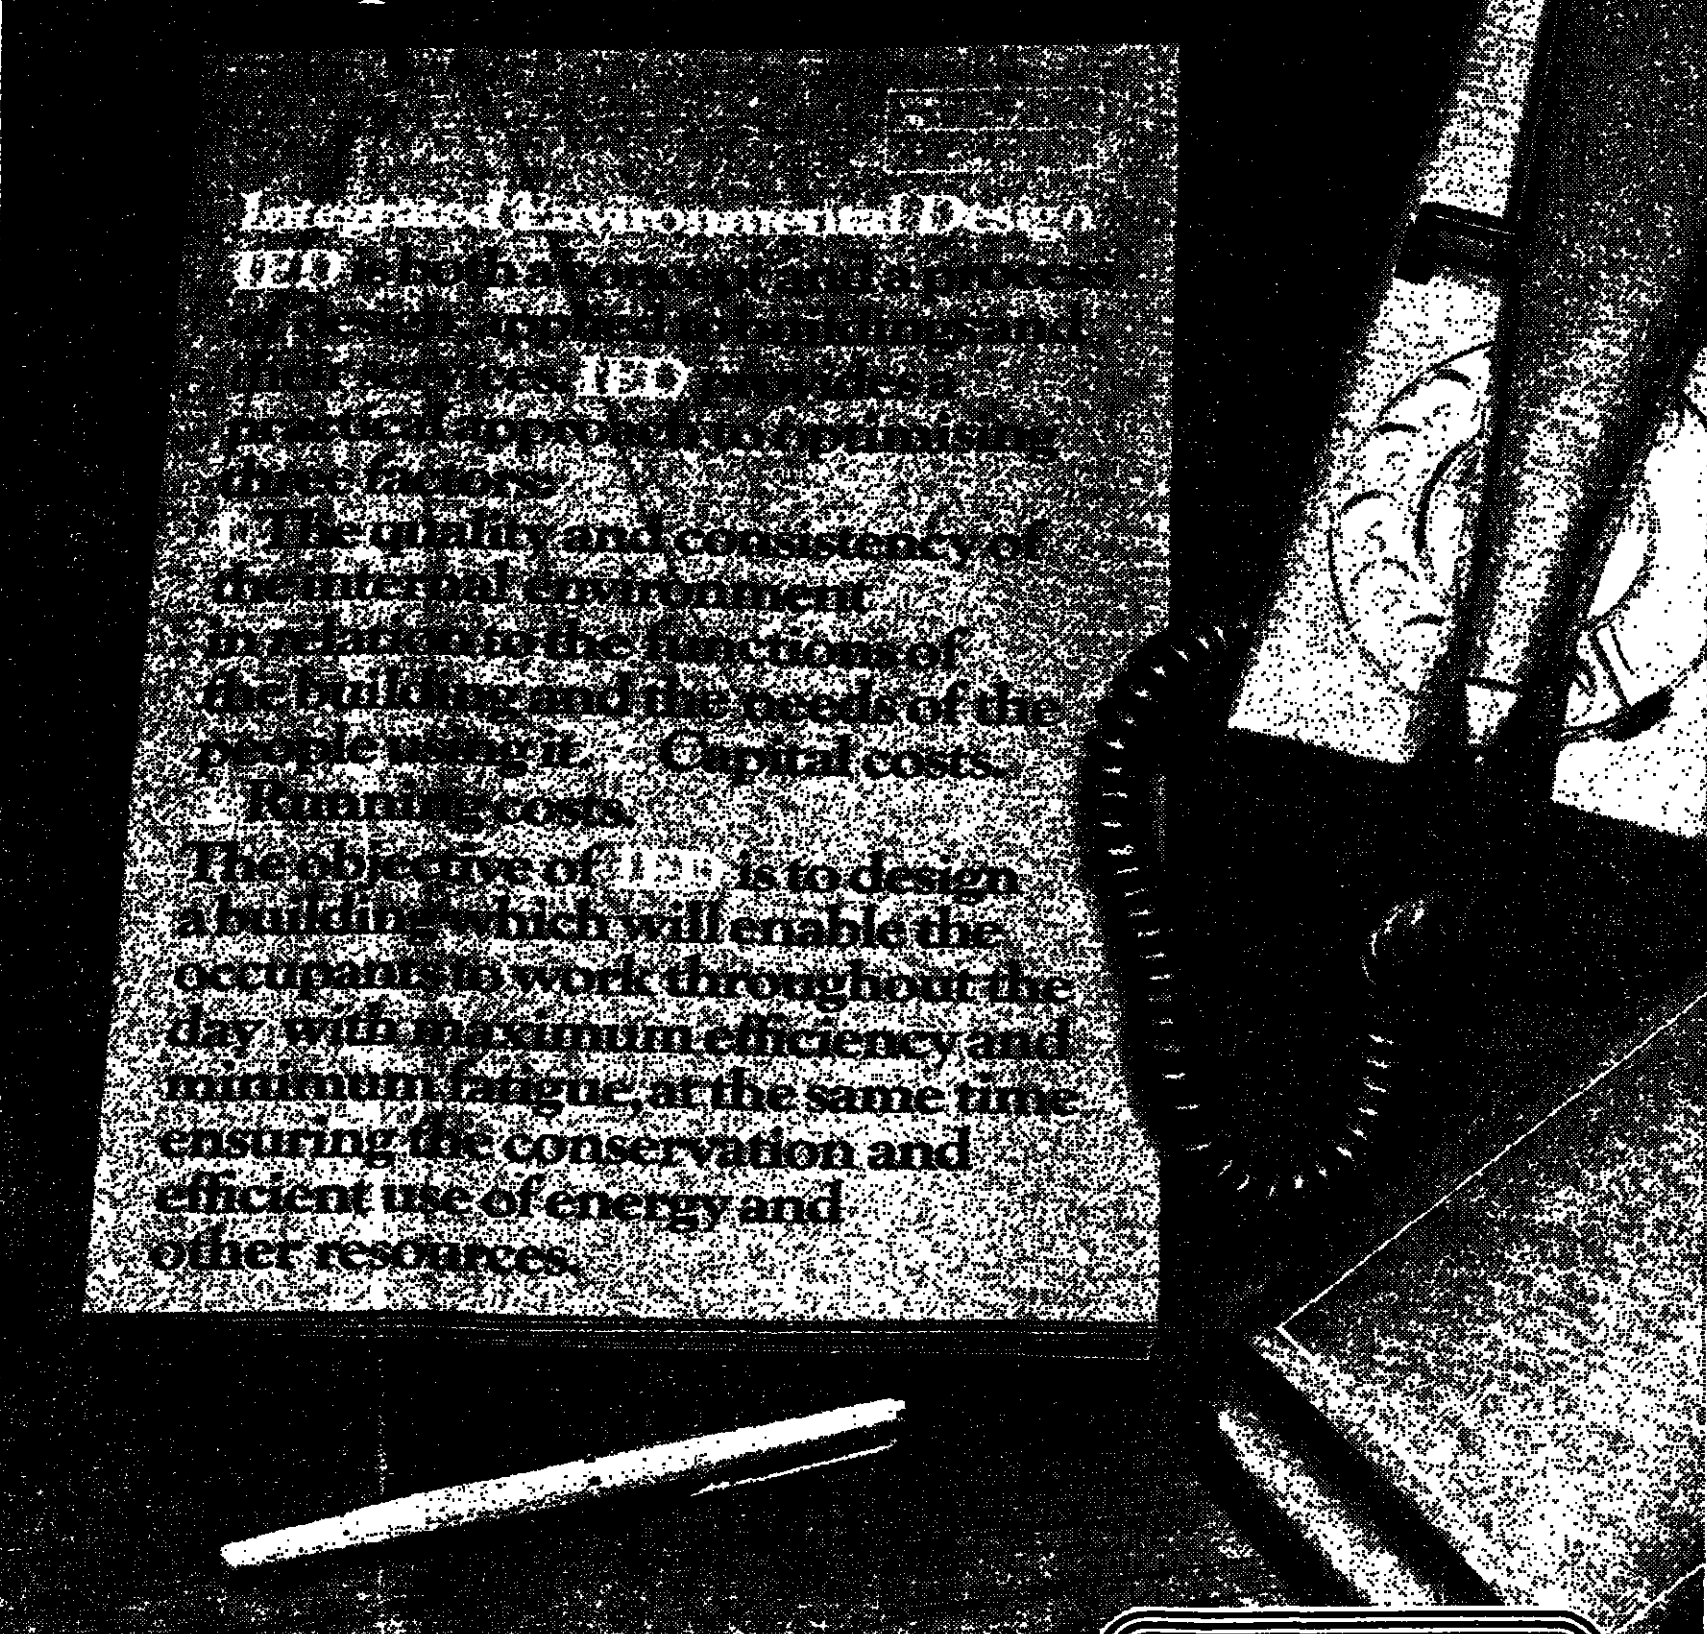 Integrated Environmental Design
IED is both a concept and a process
of design applied to buildings and
their services. IED provides a
practical approach to optimising
three factors:
The quality and consistency of
the internal environment
in relation to the functions of
the building and the needs of the
people using it. Capital costs.
Running costs.
The objective of IED is to design
a building which will enable the
occupants to work throughout the
day with maximum efficiency and
minimum fatigue, at the same time
ensuring the conservation and
efficient use of energy and
other resources.